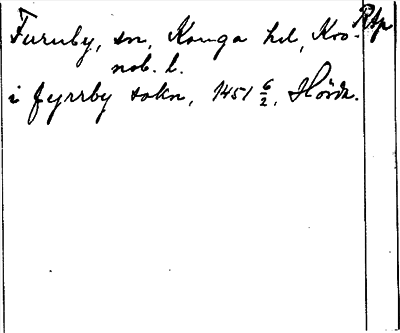 Furuby, sn, Konga hd, Kro-
nob. l.
i fyrrby sokn, 1451 6/2, Hörda.
Rtp